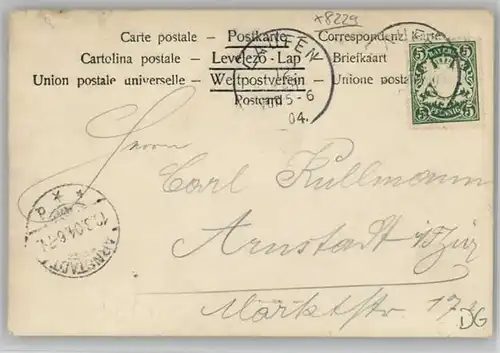 x8229
Carte postale – Postkarte – Correspondenz Karte
Cartolina postale – Levelező-Lap – Briefkaart
Union postale universelle – Weltpostverein – Unione posta
Postcard
LAUFEN
5-6
04.
BAYERN
5 5
5 PFENNIG 5
Herrn
Carl Kullmann
Arnstadt i/Thür
Marktstr. 17
ARNSTADT
12.3.04.6-7
d
DG